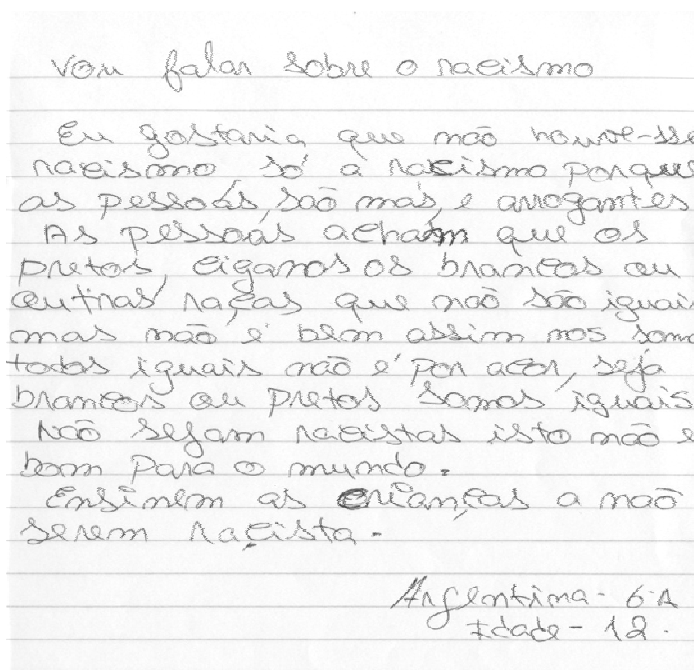 Vou falar sobre o racismo
Eu gostaria que não houve-sse
racismo, só a racismo porque
as pessoás, são más, e arrogantes
As pessoás acham que os
pretos, ciganos os brancos ou
outras raças que não são iguais
mas não é bem assim nos somo
todos iguais não é por acor, seja
brancos ou pretos somos iguais
Não sejam racistas isto não é
bom para o mundo.
Ensinem as crianças a não
serem raçista.
Argentina - 6ºA
Idade - 12.